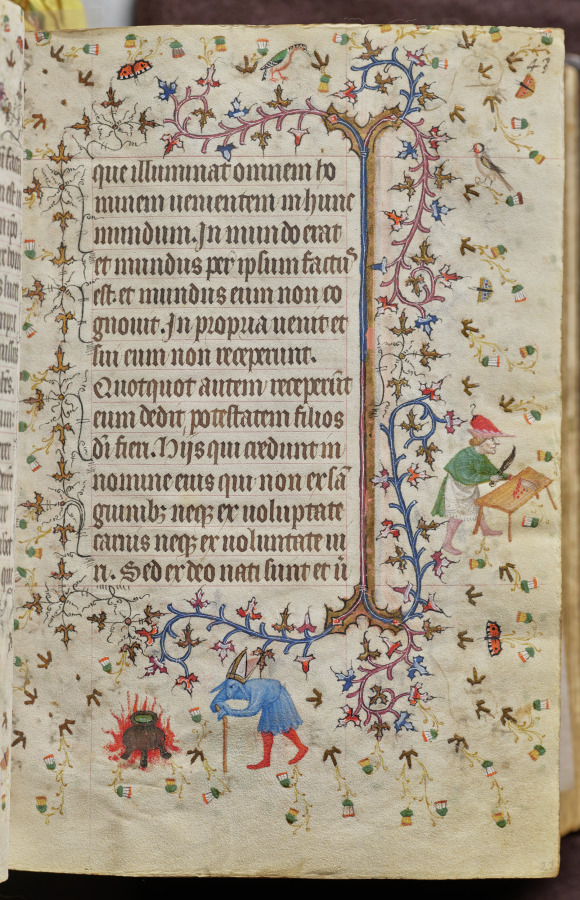 43
que illuminat omnem ho
minem uenientem in hunc
mundum. In mundo erat
et mundus per ipsum factū
est et mundus eum non co
gnouit. In propria uenit et
sui eum non receperunt.
Quotquot autem receperūt
eum dedit potestatem filios
dī fieri. Hijs qui credunt in
nomine eius qui non ex sā
guinibꝫ neqꝫ ex uoluptate
carnis neqꝫ ex uoluntate ui
ri. Sed ex deo nati sunt et ū